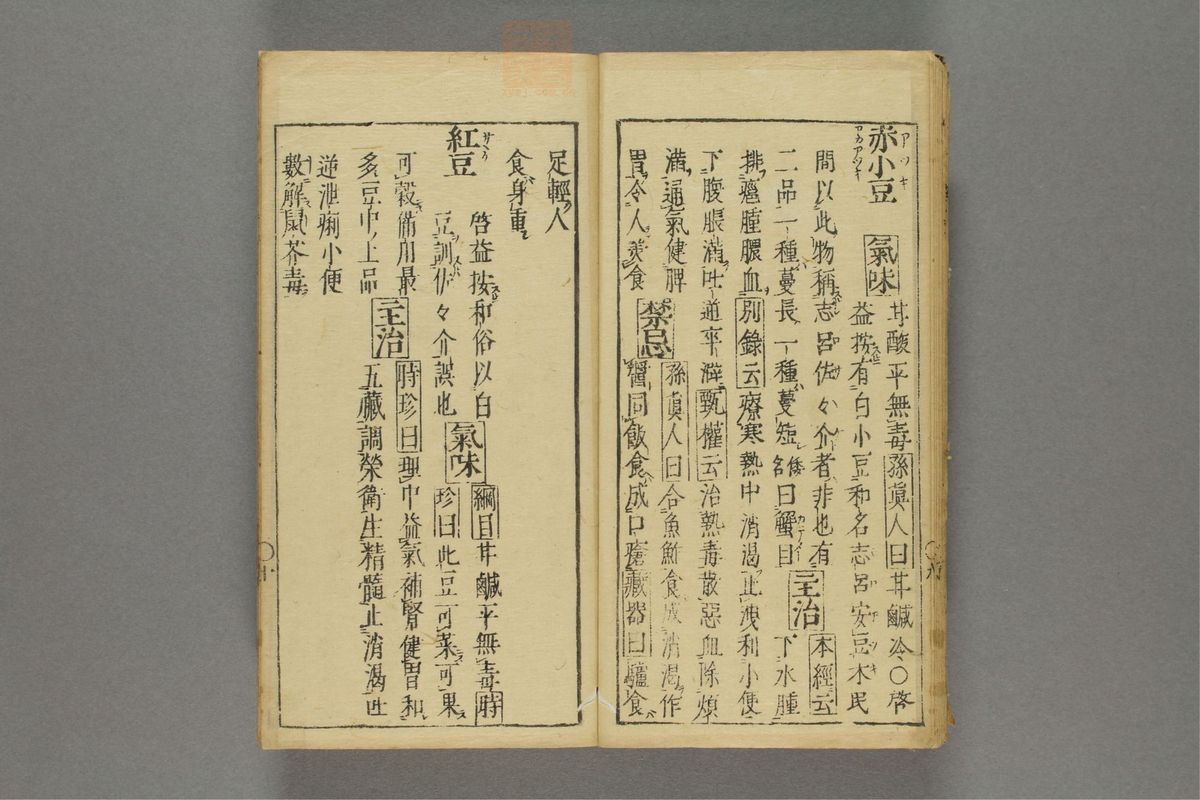 赤小豆 アツキ アカアツキ
氣味 甘酸平無毒孫眞人曰甘鹹冷〇啓
益按有白小豆和名志呂安豆木民
間以此物稱志呂佐々介者非也有
二品一種蔓長一種蔓短倭名曰蟹目 主治 本經云下水腫
排癰腫膿血別錄云療寒熱中消渴止洩利小便
下腹脹滿吐逆卒澼甄權云治熱毒散惡血除煩
滿通氣健脾
胃令人美食 禁忌 孫眞人曰合魚鮓食成消渴作
醬同飯食成口瘡藏器曰驢食
足輕人
食身重
紅豆 サヽケ
啓益按和俗以白
豆訓佐々介誤也 氣味 綱目甘鹹平無毒時
珍曰此豆可菜可果
可穀備用最
多豆中ノ上品 主治 時珍曰理中益氣補腎健胃和
五臟調榮衛生精髓止消渴吐
逆泄痢小便
數解鼠莽毒